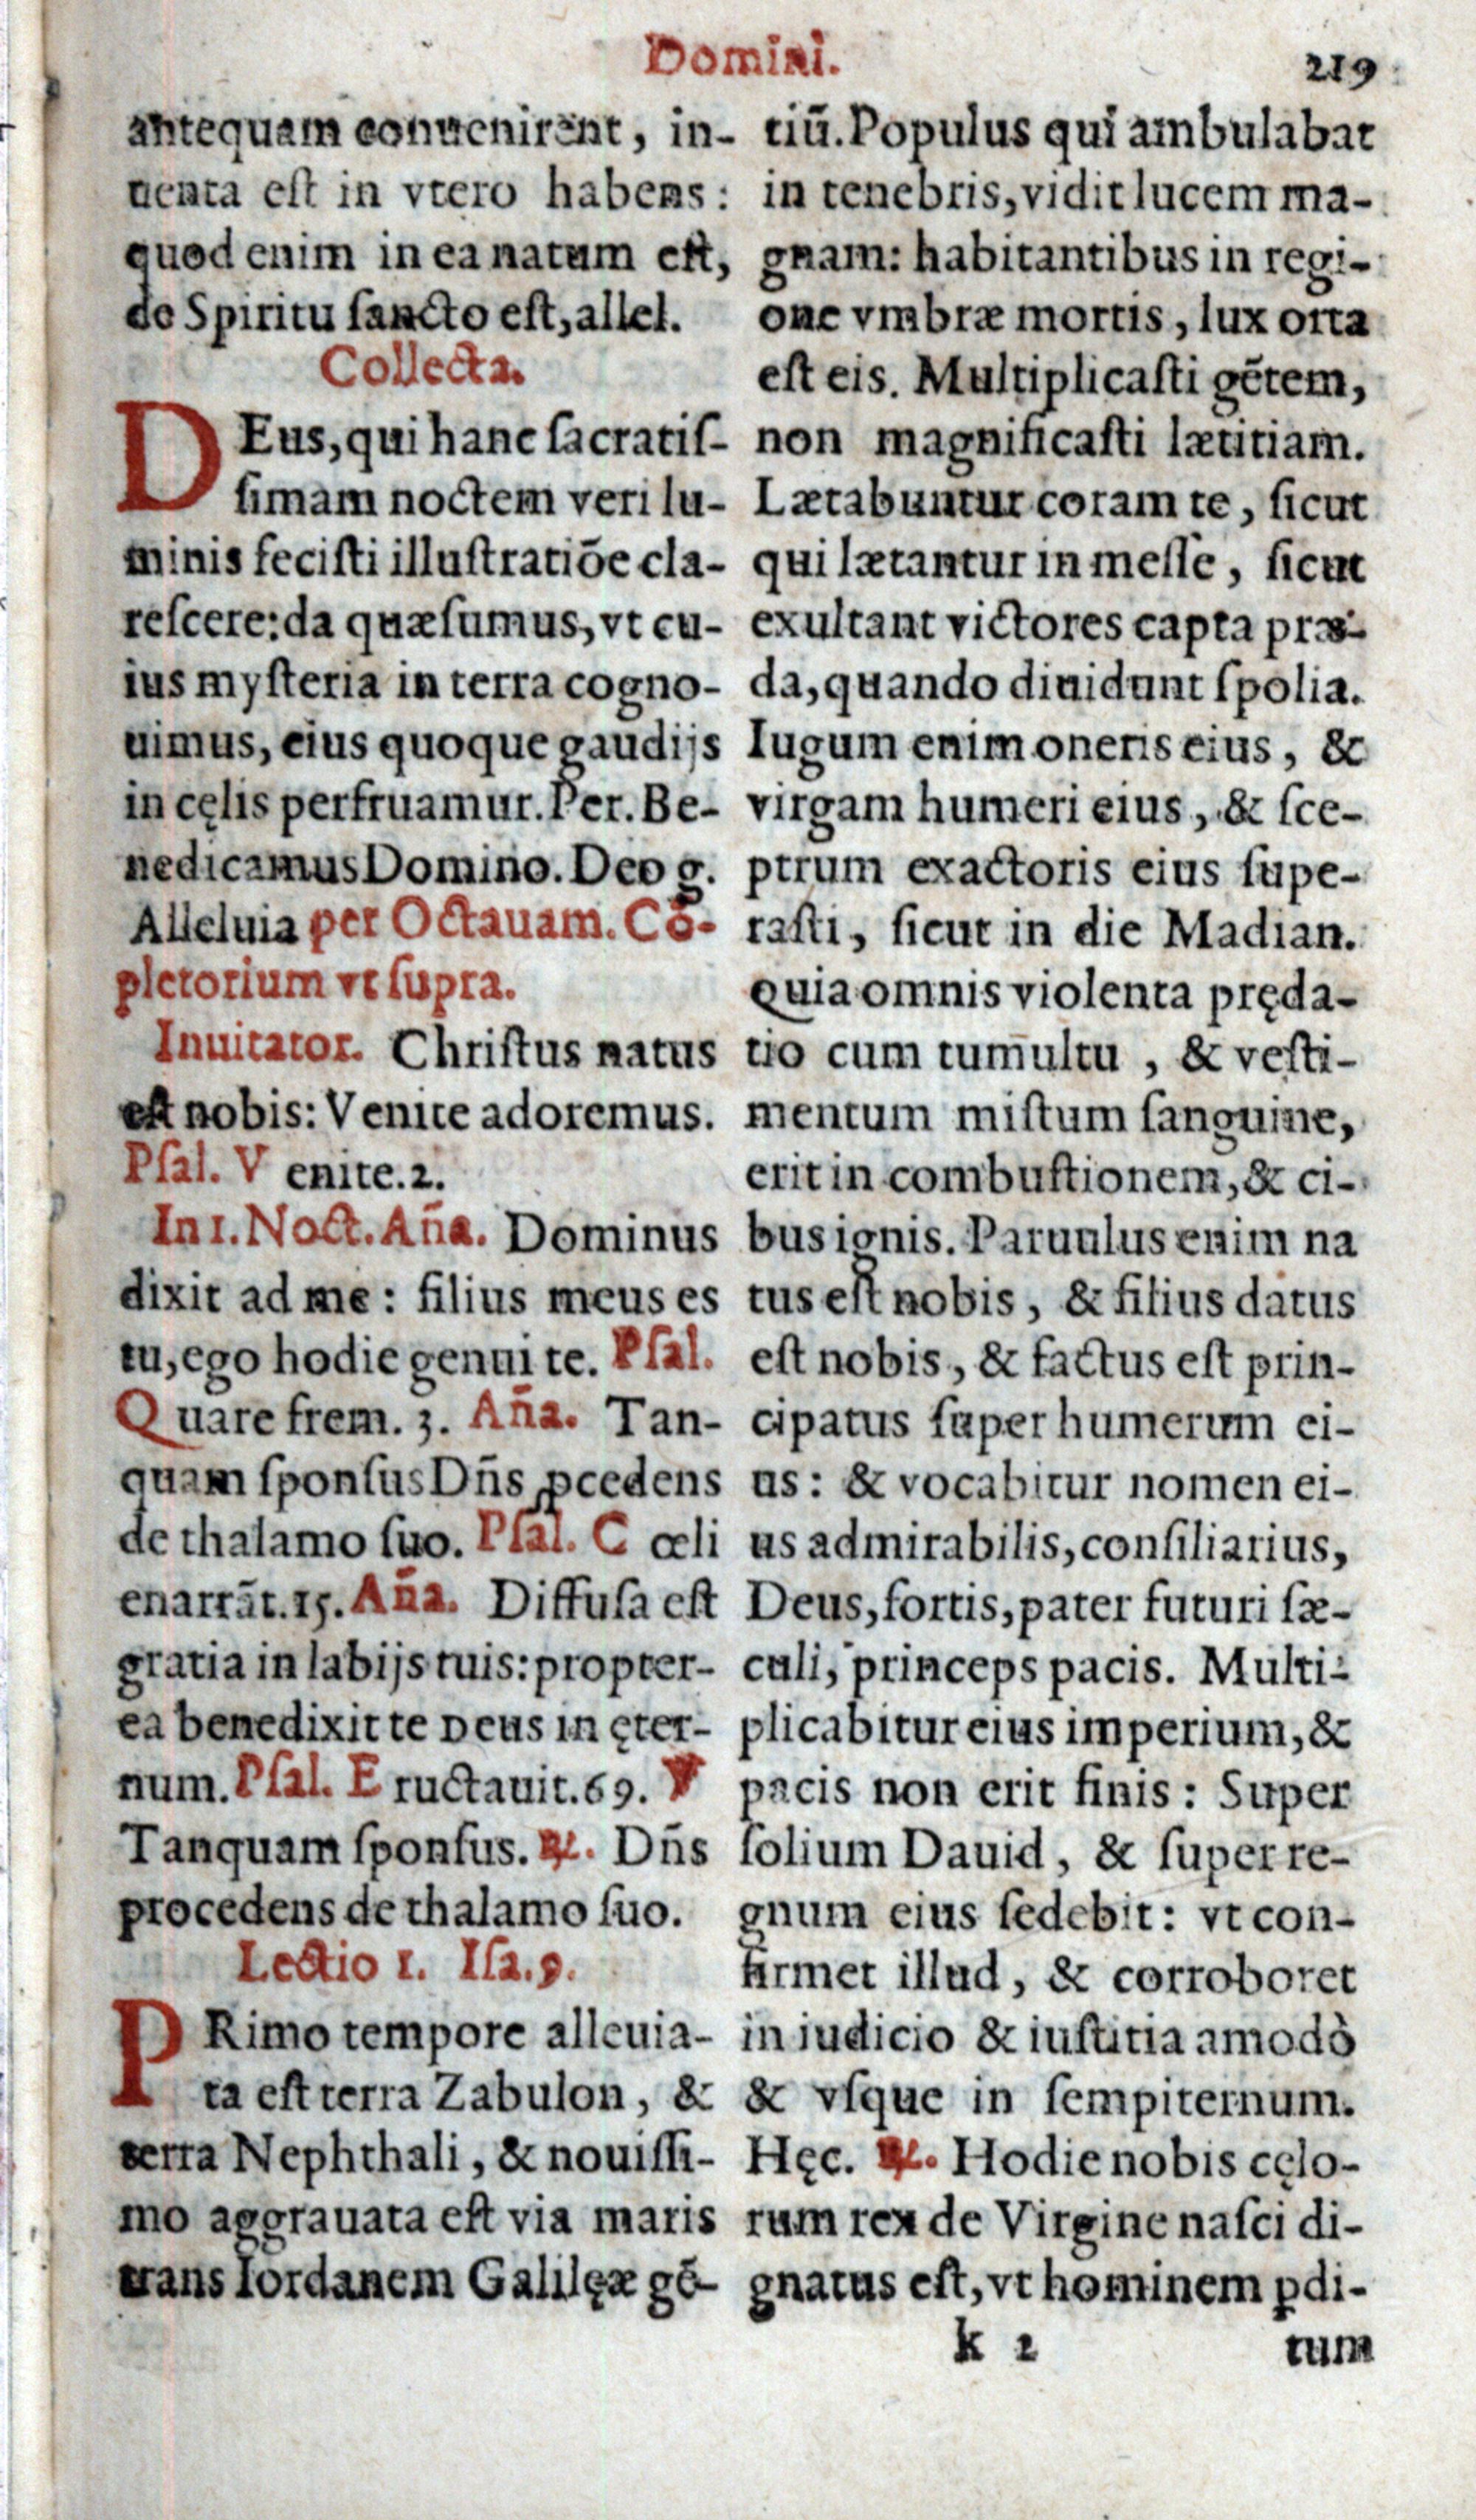 Domini.
219
antequam conuenirent, in-
uenta eſt in vtero habens:
quod enim in ea natum eſt,
de Spiritu ſancto eſt, allel.
Collecta.
DEus, qui hanc ſacratiſ-
ſimam noctem veri lu-
minis feciſti illuſtratiōe cla-
reſcere: da quæſumus, vt cu-
ius myſteria in terra cogno-
uimus, eius quoque gaudijs
in cęlis perfruamur. Per. Be-
nedicamus Domino. Deo g.
Alleluia per Octauam. Cō-
pletorium vt ſupra.
Inuitator. Chriſtus natus
eſt nobis: Venite adoremus.
Pſal. Venite. 2.
In 1. Noct. Aña. Dominus
dixit ad me: filius meus es
tu, ego hodie genui te. Pſal.
Quare frem. 3. Aña. Tan-
quam ſponſus Dñs ꝓcedens
de thalamo ſuo. Pſal. Cœli
enarrāt. 15. Aña. Diffuſa eſt
gratia in labijs tuis: propter-
ea benedixit te Deus in ęter-
num. Pſal. Eructauit. 69. ℣
Tanquam ſponſus. ℟. Dñs
procedens de thalamo ſuo.
Lectio 1. Iſa. 9.
PRimo tempore alleuia-
ta eſt terra Zabulon, &
terra Nephthali, & nouiſſi-
mo aggrauata eſt via maris
trans Iordanem Galilęæ gē-
tiū. Populus qui ambulabat
in tenebris, vidit lucem ma-
gnam: habitantibus in regi-
one vmbræ mortis, lux orta
eſt eis. Multiplicaſti gētem,
non magnificaſti lætitiam.
Lætabuntur coram te, ſicut
qui lætantur in meſſe, ſicut
exultant victores capta præ-
da, quando diuidunt ſpolia.
Iugum enim oneris eius, &
virgam humeri eius, & ſce-
ptrum exactoris eius ſupe-
raſti, ſicut in die Madian.
Quia omnis violenta pręda-
tio cum tumultu, & veſti-
mentum miſtum ſanguine,
erit in combuſtionem, & ci-
bus ignis. Paruulus enim na
tus eſt nobis, & filius datus
eſt nobis, & factus eſt prin-
cipatus ſuper humerum ei-
us: & vocabitur nomen ei-
us admirabilis, conſiliarius,
Deus, fortis, pater futuri ſæ-
culi, princeps pacis. Multi-
plicabitur eius imperium, &
pacis non erit finis: Super
ſolium Dauid, & ſuper re-
gnum eius ſedebit: vt con-
firmet illud, & corroboret
in iudicio & iuſtitia amodò
& vſque in ſempiternum.
Hęc. ℟. Hodie nobis cęlo-
rum rex de Virgine naſci di-
gnatus eſt, vt hominem ꝑdi-
k 2
tum